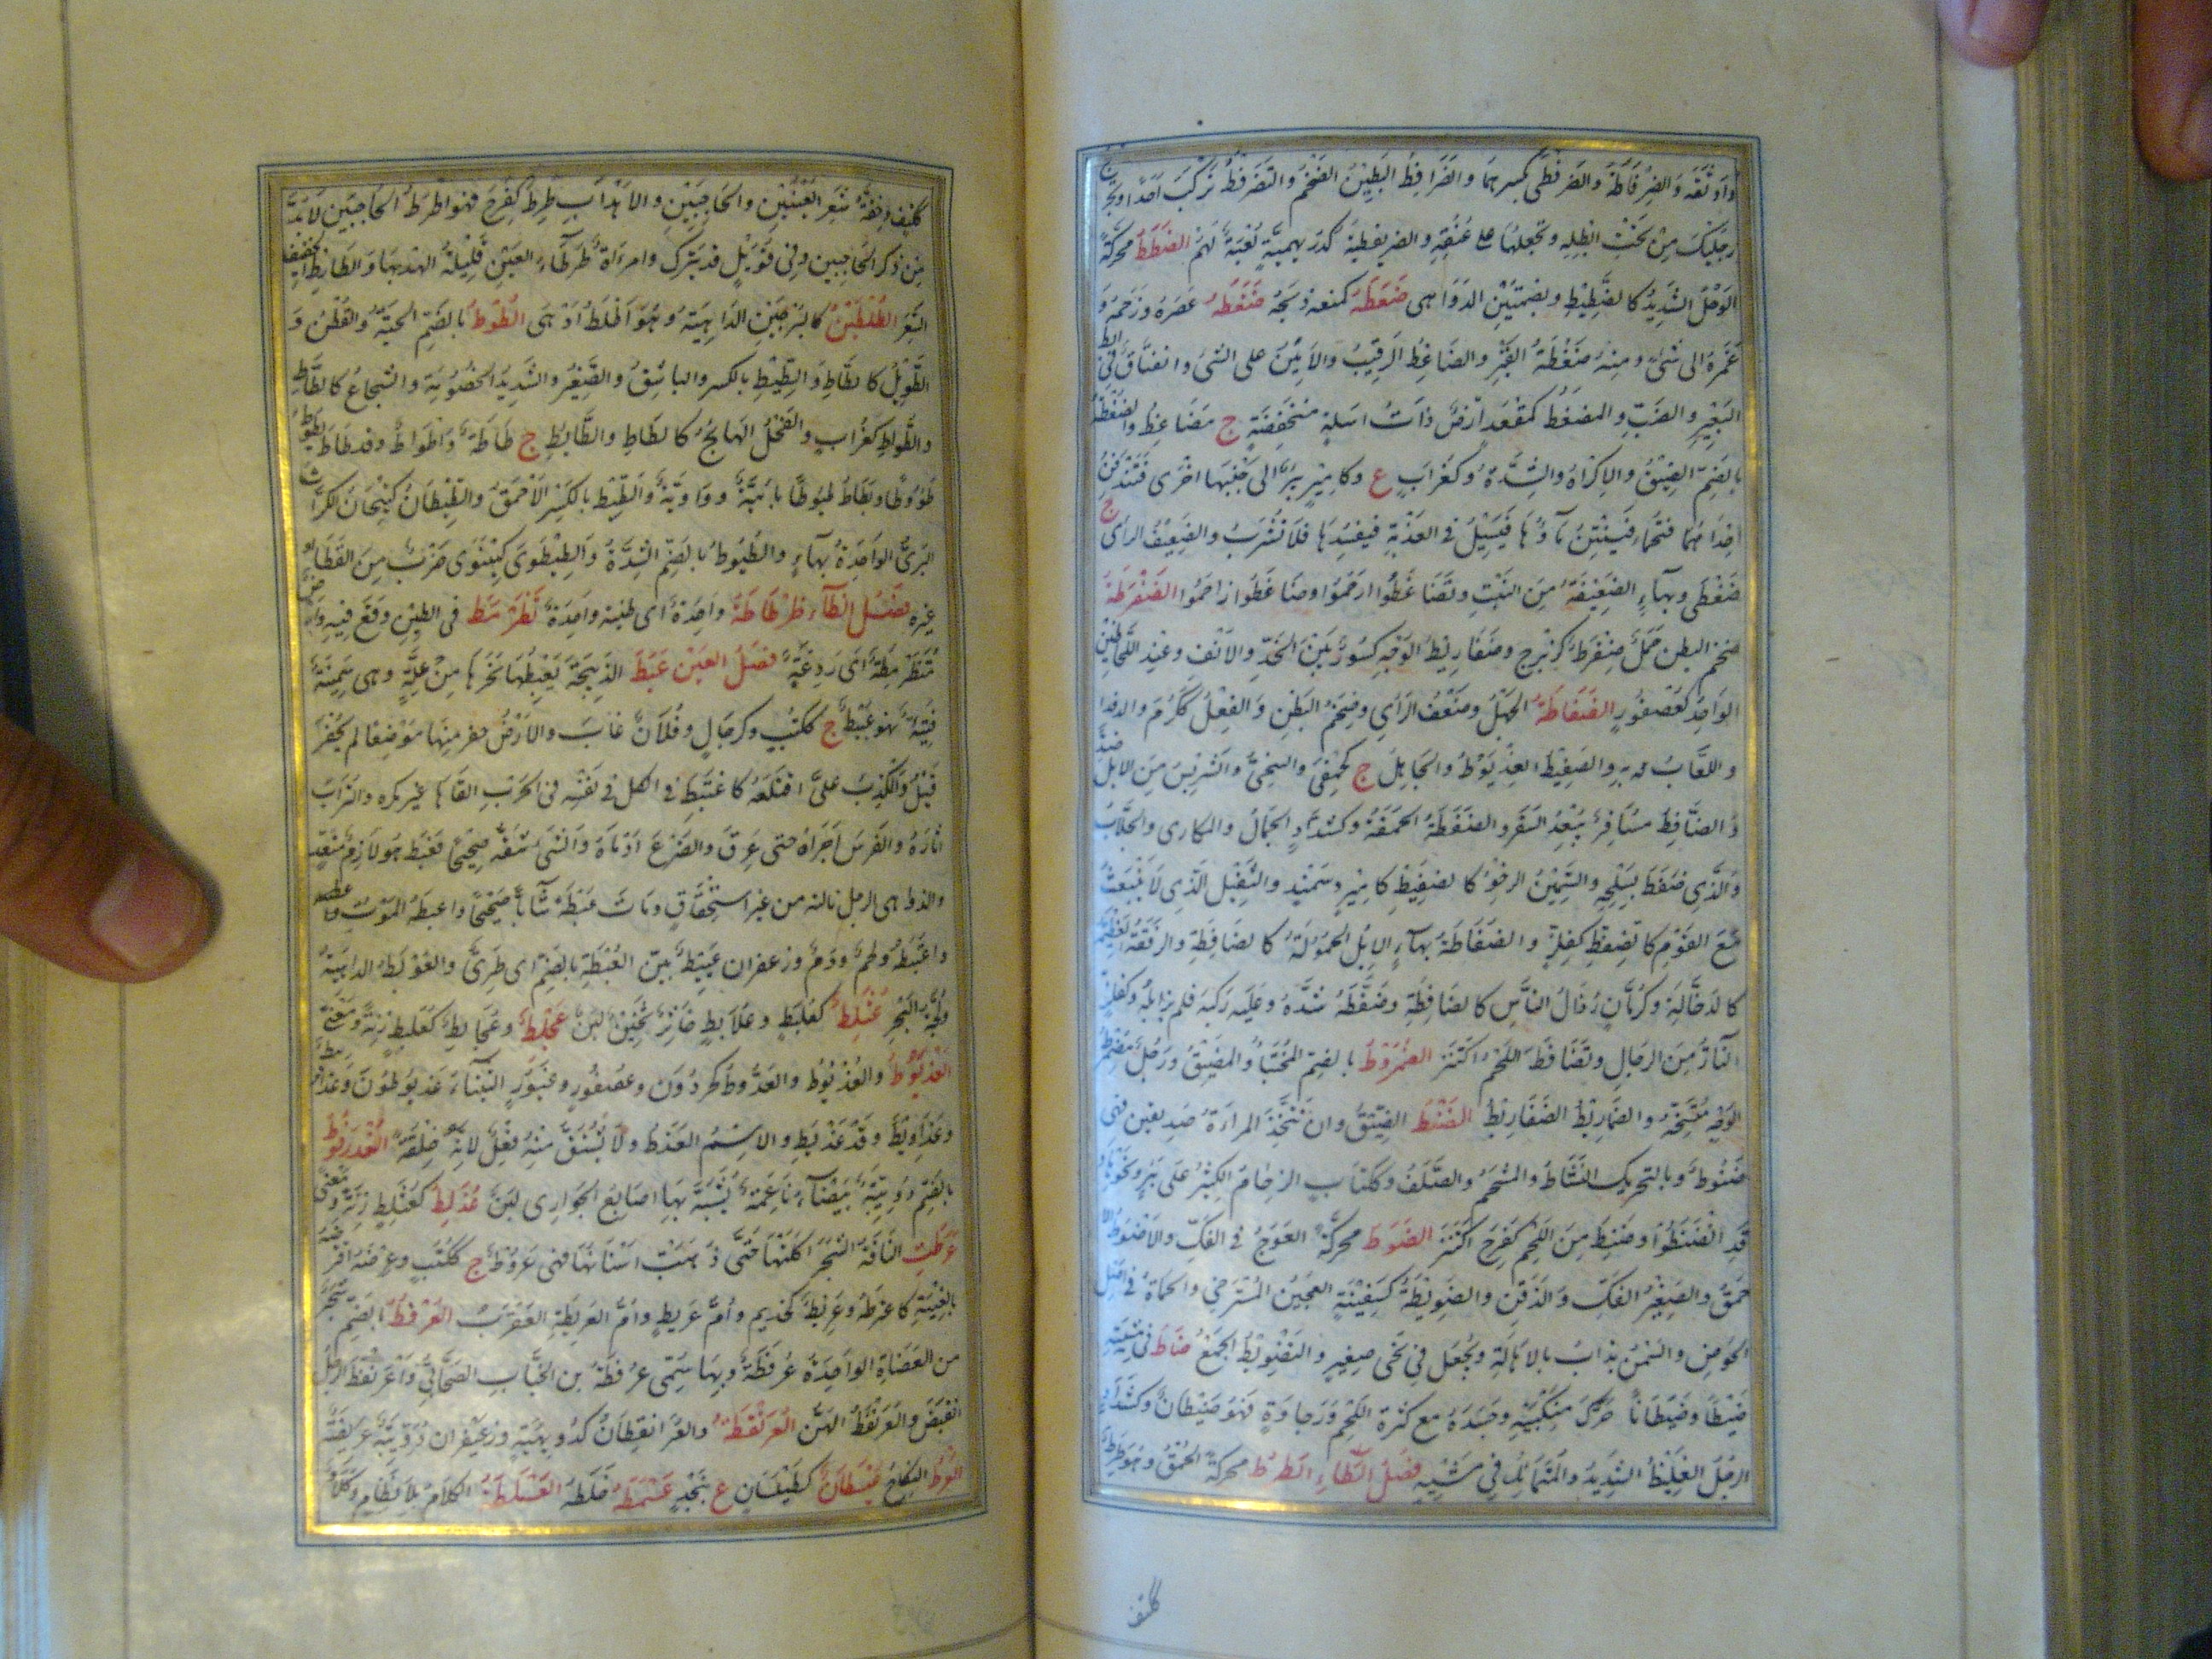 وأوثقه والضرفاطة والضرفطى بكسرهما والضرافط البطين الضخم والتضرفط تركب أحدا وتخرج
رجليك من تحت إبطيه وتجعلهما على عنقه والضريفطية لعبة لهم الضطط محركة
الوحل الشديد كالضطيط وبضمتين الدواهى ضغطه كمنعه ضغطه عصره وزحمه و
غمزه الى شئ ومنه ضغطة القبر والضاغط الرقيب والأمين على الشئ وانفتاق في ابط
البعير والضب والمضغط كمقعد أرض ذات اسلة منخفضة ج مضاغط والضغطة
بالضم الضيق والإكراه والشدة وكغراب ع وكأمير بئر الى جنبها اخرى فتندفن
إحداهما فتحمأ فينتن ماؤها فيسيل في العذبة فيفسدها فلا تشرب والضعيف الرأى ج
ضغطى وبهاء الضعيفة من النبت وتضاغطوا ازدحموا وضاغطوا زاحموا الضفرطة
ضخم البطن جمل ضفرط كزبرج وضفاريط الوجه كسور بين الخد والأنف وعند اللحاظين
الواحد كعصفور الضفاطة الجهل وضعف الرأى وضخم البطن والفعل ككرم والدف
واللعاب به والضفيط العذيوط والجاهل ج كحمقى والسخى والشرس من الإبل ضد
والضافط مسافر يبعد السفر والضفطة الحمقة وكشداد الجمال والمكارى والجلاب
والذى ضفط بسلحه والسمين الرخو كالضفيط كأمير وسمند والثقيل الذى لا ينبعث
مع القوم كالضفط كفلز والضفاطة بهاء الإبل الحمولة كالضافطة والرفقة العظيمة
كالدجالة وكرمان رذال الناس كالضافطة وضفطه شده وعليه ركبه فلم يزايله وكفلز
التار من الرجال وتضافط اللحم اكتنز الضمروط بالضم المختبأ والمضيق ورجل مضمرط
الوجه متشنجه والضماريط الضفاريط الضنط الضيق وان تتخذ المرأة صديقين فهى
ضنوط وبالتحريك النشاط والشحم والصلف وككتاب الزحام الكثير على بئر ونحوها و
قد انضنطوا وضنط من اللحم كفرح اكتنز الضوط محركة العوج في الفك والأضوط
حمق والصغير الفك والذقن والضويطة كسفينة العجين المسترخى والحمأة في أصل
الحوض والسمن يذاب بالإهالة ويجعل في نحى صغير والتضويط الجمع ضاط في مشيته
ضيطا وضيطانا حرك منكبيه وجسده مع كثرة اللحم ورخاوة فهو ضيطان وكشداد
الرجل الغليظ الشديد والمتمايل في مشيه فصل الطاء الطرط محركة الحمق وهو طرط
كتف
ككتف وخفة شعر العينين والحاجبين والأهداب طرط كفرح فهو اطرط الحاجبين لا بد
من ذكر الحاجبين وفى قويل قد يترك وامرأة طرطاء العين قليلة الهدبها والطارط خفيف
الشعر الطلطين كالبرحين الداهية وهو أطلط ادهى الطوط بالضم الحية والقطن و
الطويل كالطاط والطيط بالكسر والباشق والصغير والشديد الخصومة والشجاع كالطاط
والطواط كغراب والفحل الهائج كالطاط والطائط ج طاطة واطواط وقد طاط يطوط
طؤوطا ويطاط طيوطا يائية وواوية والطيط بالكسر الأحمق والطيطان كتيجان الكراث
البرى الواحدة بهاء والطيوط بالضم الشدة والطيطوى كنينوى ضرب من القطا او
غيره فصل الظاء ظرطاطة واحدة اى طينة واحدة تظرمط في الطين وقع فيه وأرض
متظرمطة اى ردغة فصل العين عبط الذبيحة يعبطها نحرها من غير علة وهى سمينة
فتية فهو عبيط ج ككتب وكرجال وفلان غاب والأرض حفر منها موضعا لم يحفر
قبل والكذب على افتعله كاعتبط في الكل في نفسه في الحرب القاها غير مكره والتراب
أثاره والفرس اجراه حتى عرق والضرع ادماه والشئ شقه صحيحا فعبط هو لازم متعد
والدواهى الرجل نالته من غير استحقاق ومات عبطة شابا صحيحا واعبطه الموت
واعتبطه ولحم ودم وزعفران عبيط بين العبطة بالضم اى طرى والعوبط الداهية
ولجة البحر عثلط كعلبط وعلابط خاثر ثخين لبن عجلط وعجالط كعثلط زنة ومعنى
العذيوط والعذيوط والعذوط كحردون وعصفور وعتور التيتاء عذيوطون وعذاييط
وعذاويط وقد عذيط والاسم العذط ولا يشتق منه فعل لانه خلقة العذرفوط
بالضم دويبة بيضاء ناعمة يشبه بها اصابع الجوارى لبن عذلط كعثلط زنة ومعنى
عرطت الناقة الشجر اكلتها حتى ذهبت اسنانها فهى عروط ج ككتب وعرضه اقترضه
بالغيبة كاعترطه وعريط كحذيم وام عريط وام العريط العقرب العرفط بالضم شجر
من العضاة الواحدة عرفطة وبها سمى عرفطة بن الحباب الصحابى واعرنفط الرجل
انقبض والعرنفط الهن العرنقطة والعريقطان كدويهية وزعيفران دويبة عريضة
العزط النكاح عيسطان كطيلسان ع بنجد عسمطه خلطه العسلطة الكلام بلا نظام وكلام